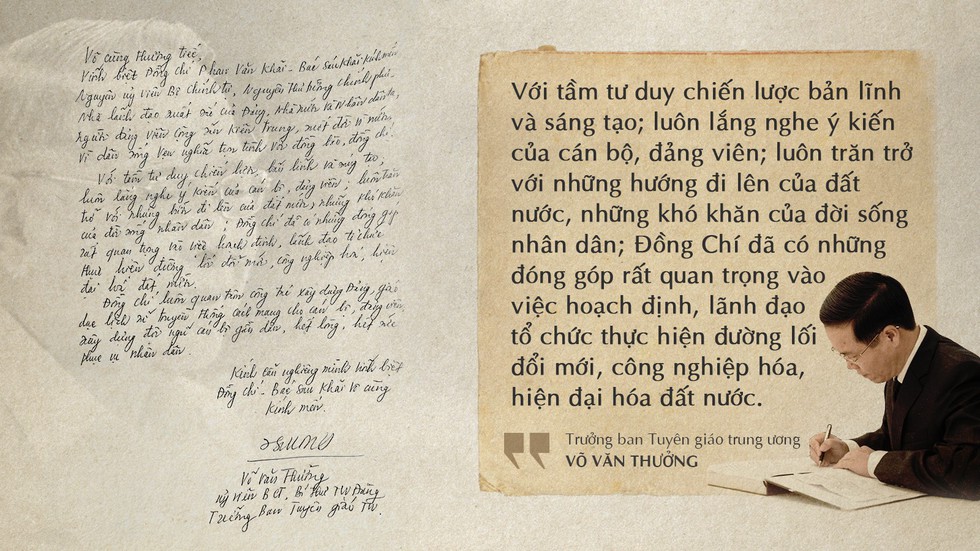 Vô cùng thương tiếc,
Vĩnh biệt Đồng chí Phan Văn Khải - Bác Sáu Khải kính mến
Nguyên ủy viên Bộ Chính trị, Nguyên Thủ tướng Chính phủ -
Nhà lãnh đạo xuất sắc của Đảng, Nhà nước và Nhân dân ta,
người đảng viên Cộng sản kiên trung, một đời vì nước,
vì dân sống vẹn nghĩa tròn tình với đồng bào, đồng chí.
Với tầm tư duy chiến lược, bản lĩnh và sáng tạo;
luôn lắng nghe ý kiến của cán bộ, đảng viên; luôn trăn
trở với những hướng đi lên của đất nước, những khó khăn
của đời sống nhân dân; Đồng chí đã có những đóng góp
rất quan trọng về việc hoạch định, lãnh đạo tổ chức
thực hiện đường lối đổi mới, công nghiệp hóa, hiện
đại hóa đất nước.
Đồng chí luôn quan tâm công tác xây dựng Đảng, giáo
dục lịch sử truyền thống cách mạng cho cán bộ, đảng viên
xây dựng đội ngũ cán bộ gần dân, hết lòng, hết sức
phục vụ nhân dân.
Kính cẩn nghiêng mình vĩnh biệt
Đồng chí - Bác Sáu Khải vô cùng
kính mến.
Võ Văn Thưởng
Ủy viên BCT, Bí thư TW Đảng
Trưởng Ban Tuyên giáo TW.
Với tầm tư duy chiến lược bản lĩnh
và sáng tạo; luôn lắng nghe ý kiến
của cán bộ, đảng viên; luôn trăn trở
với những hướng đi lên của đất
nước, những khó khăn của đời sống
nhân dân; Đồng Chí đã có những
đóng góp rất quan trọng vào
việc hoạch định, lãnh đạo
tổ chức thực hiện đường lối
đổi mới, công nghiệp hóa,
hiện đại hóa đất nước.
Trưởng ban Tuyên giáo trung ương
VÕ VĂN THƯỞNG